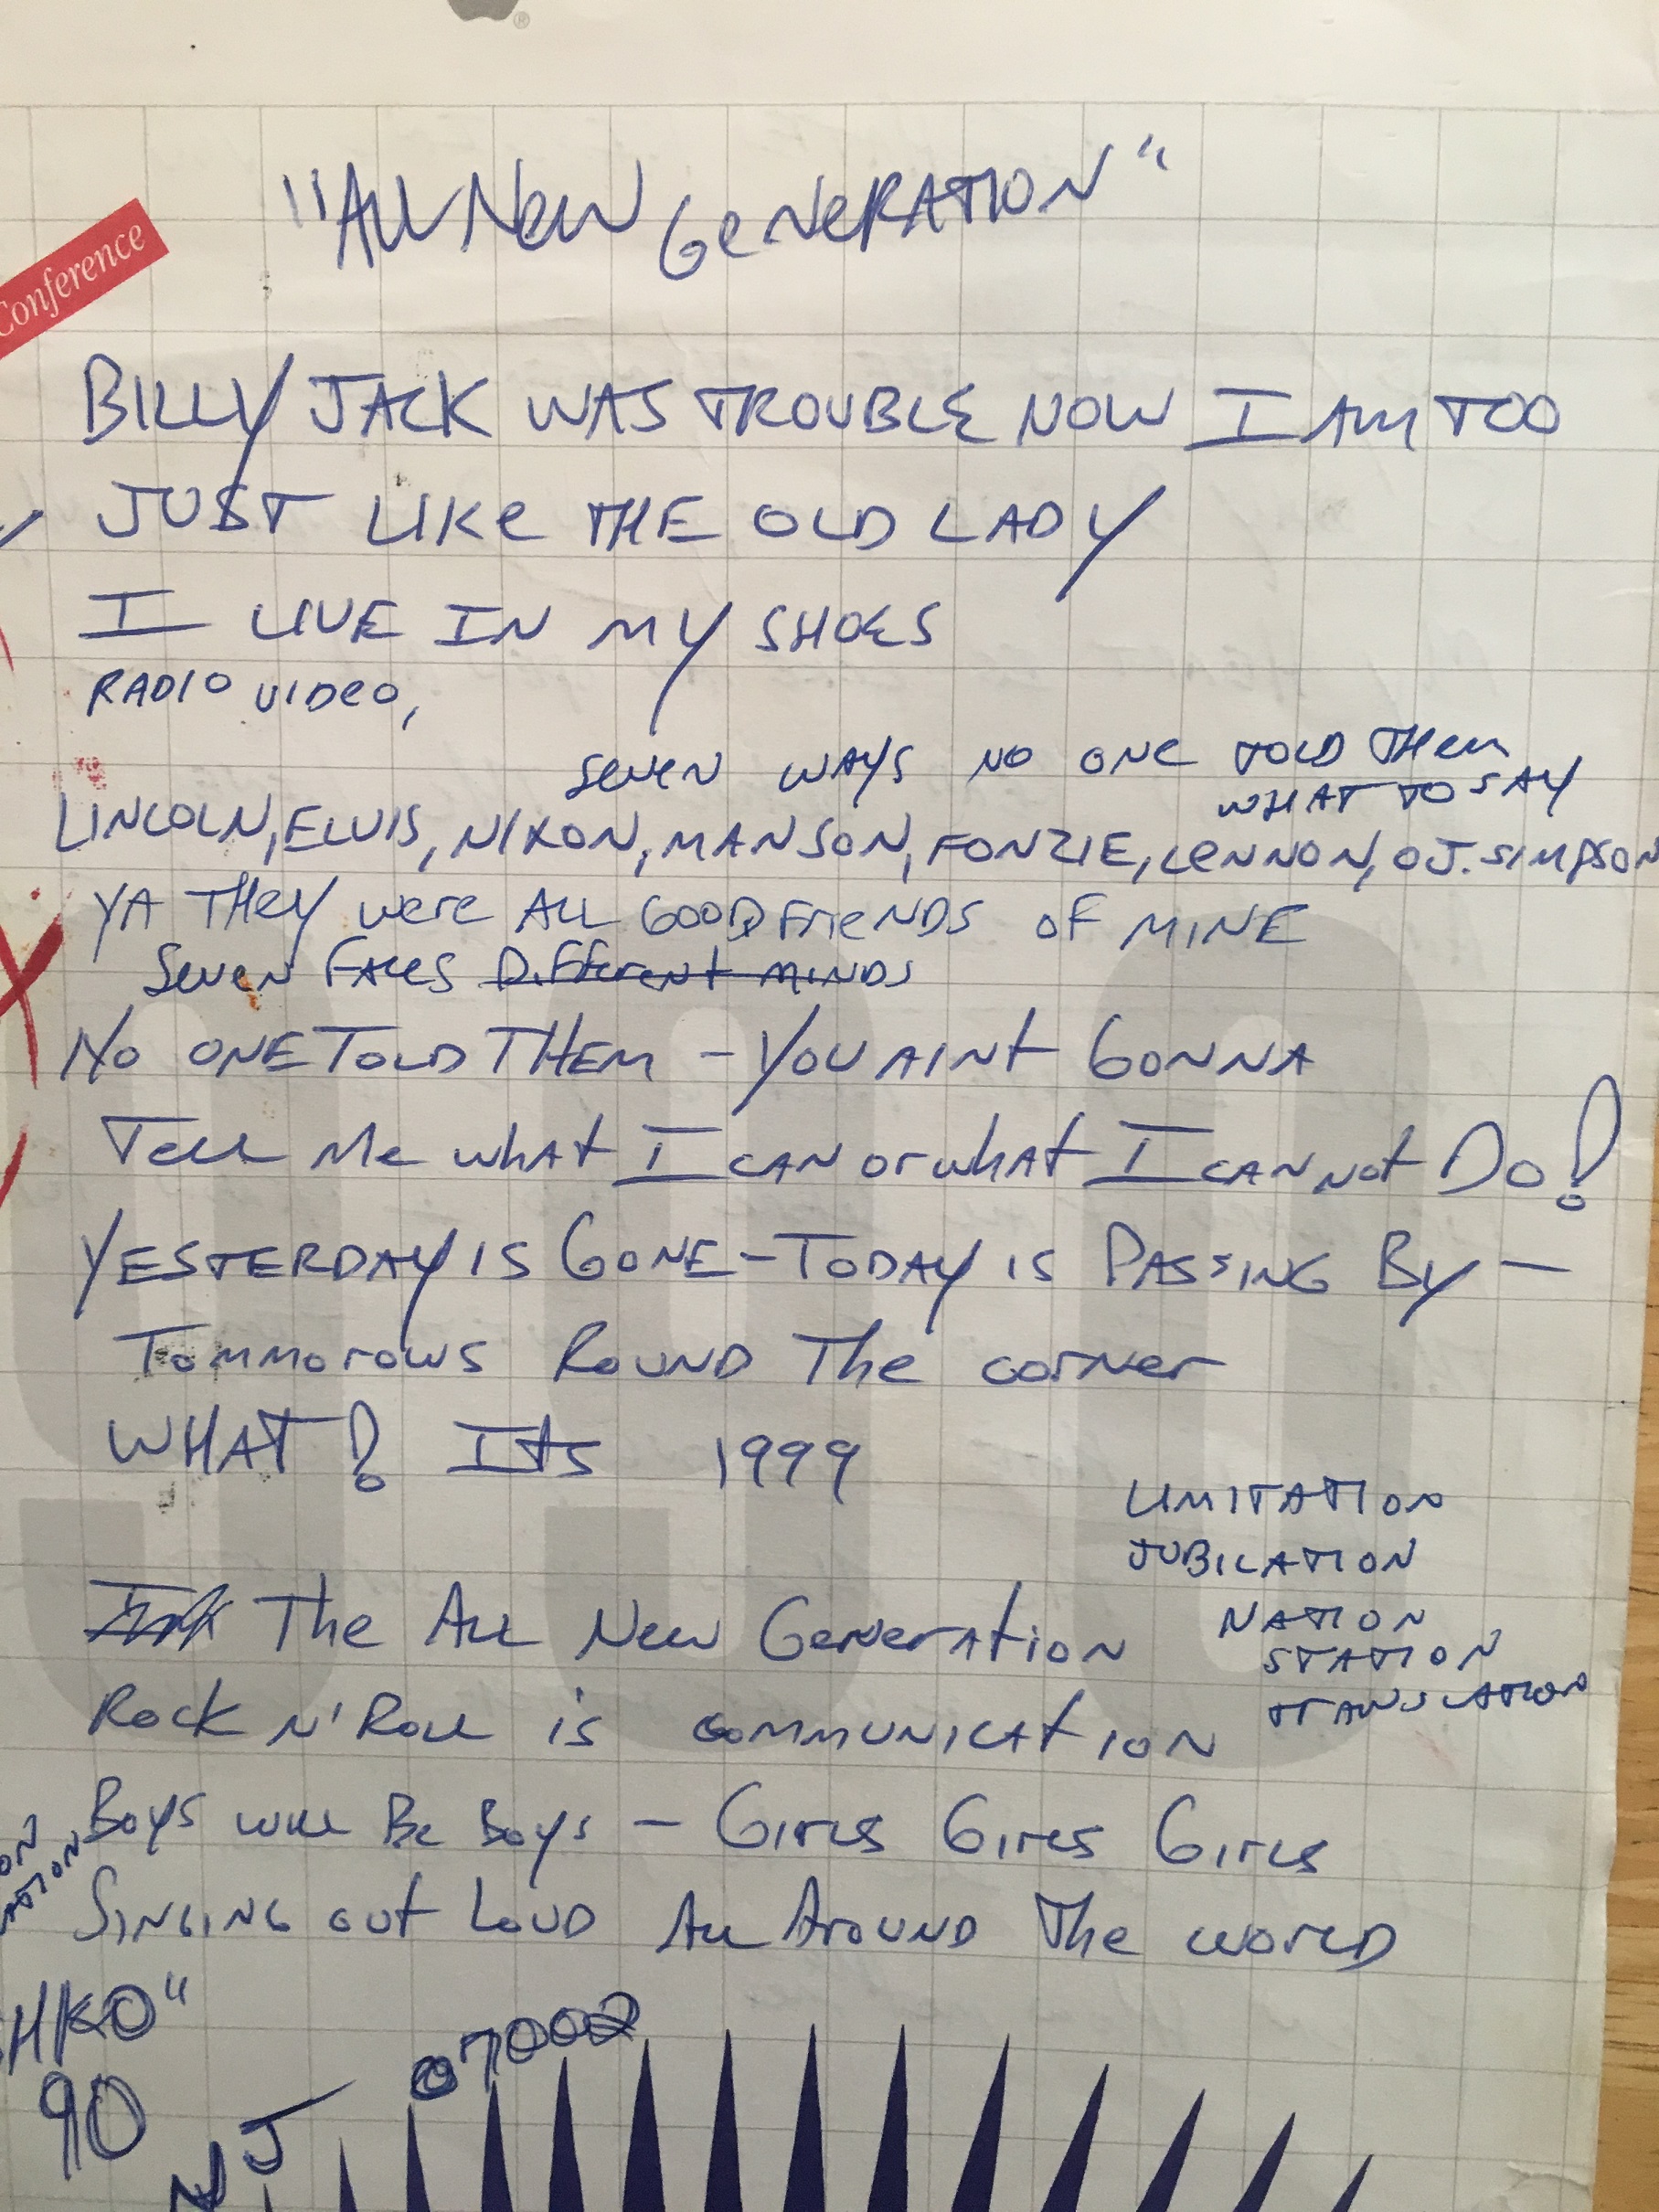 ®
"ALL NEW GENERATION"
Conference
BILLY JACK WAS TROUBLE NOW I AM TOO
JUST LIKE THE OLD LADY
I LIVE IN MY SHOES
RADIO VIDEO,
SEVEN WAYS NO ONE TOLD THEM
WHAT TO SAY
LINCOLN, ELVIS, NIXON, MANSON, FONZIE, LENNON, OJ. SIMPSON
YA THEY WERE ALL GOOD FRIENDS OF MINE
SEVEN FACES DIFFERENT MINDS
NO ONE TOLD THEM - YOU AINT GONNA
TELL ME WHAT I CAN OR WHAT I CAN NOT DO!
YESTERDAY IS GONE - TODAY IS PASSING BY -
TOMMOROWS ROUND THE CORNER
WHAT! ITS 1999
LIMITATION
JUBILATION
NATION
STATION
TRANSLATION
THE ALL NEW GENERATION
ROCK N' ROLL IS COMMUNICATION
BOYS WILL BE BOYS - GIRLS GIRLS GIRLS
SINGING OUT LOUD ALL AROUND THE WORLD
HKO"
90
NJ 07002